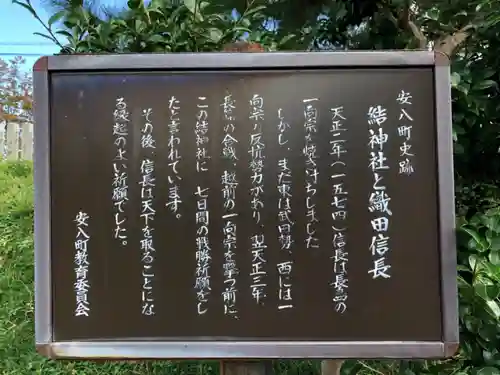 安八町史跡
結神社と織田信長
天正二年(一五七四)信長は長島の
一向宗を焼き付けしました
しかし、まだ東は武田勢、西には一
向宗の反抗勢力があり、翌天正三年、
長篠の合戦、越前の一向宗を撃つ前に、
この結神社に 七日間の戦勝祈願をし
たと言われています。
その後、信長は天下を取ることにな
る縁起のよい祈願でした。
安八町教育委員会